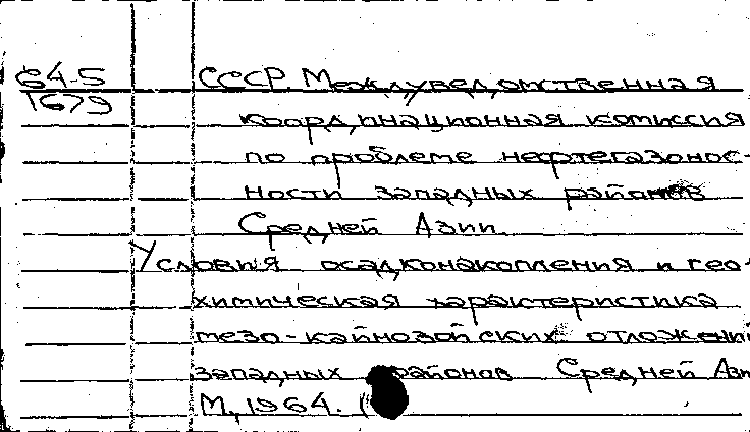 64-5 СССР. Междуведомственная
1679
координационная комиссия
по проблеме нефтегазонос-
ности западных районов
Средней Азии.
Условия осадконакопления и гео-
химическая характеристика
мезо-кайнозойских отложений
западных районов Средней Ази
М., 1964. (